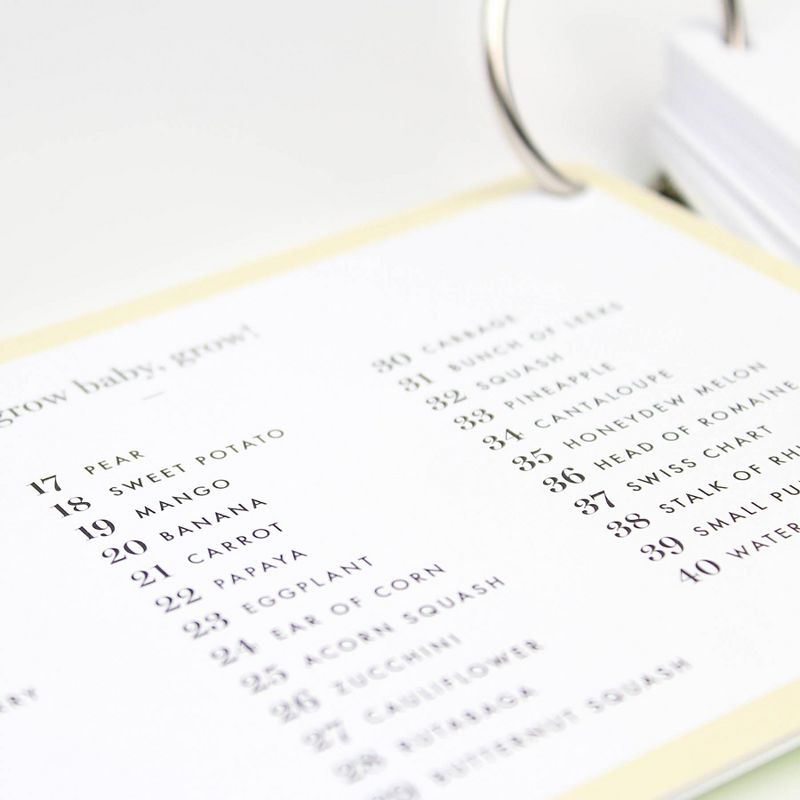 grow baby, grow!
RRY
17 PEAR
18 SWEET POTATO
19 MANGO
20 BANANA
21 CARROT
22 PAPAYA
23 EGGPLANT
24 EAR OF CORN
25 ACORN SQUASH
26 ZUCCHINI
27 CAULIFLOWER
28 RUTABAGA
29 BUTTERNUT SQUASH
30 CABBAGE
31 BUNCH OF LEEKS
32 SQUASH
33 PINEAPPLE
34 CANTALOUPE
35 HONEYDEW MELON
36 HEAD OF ROMAINE
37 SWISS CHART
38 STALK OF RH
39 SMALL PU
40 WATER